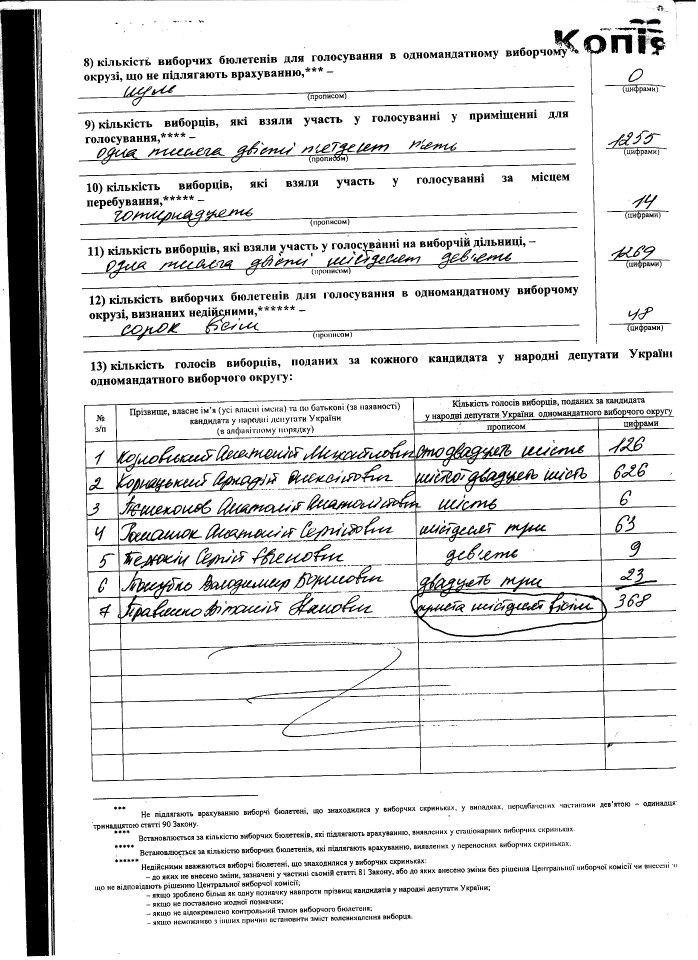 Копія
8) кількість виборчих бюлетенів для голосування в одномандатному виборчому
окрузі, що не підлягають врахуванню,*** –
нуль 0
(прописом) (цифрами)
9) кількість виборців, які взяли участь у голосуванні у приміщенні для
голосування,**** –
одна тисяча двісті п'ятдесят п'ять 1255
(прописом) (цифрами)
10) кількість виборців, які взяли участь у голосуванні за місцем
перебування,***** –
чотирнадцять 14
(прописом) (цифрами)
11) кількість виборців, які взяли участь у голосуванні на виборчій дільниці, –
одна тисяча двісті шістдесят дев'ять 1269
(прописом) (цифрами)
12) кількість виборчих бюлетенів для голосування в одномандатному виборчому
окрузі, визнаних недійсними,****** –
сорок вісім 48
(прописом) (цифрами)
13) кількість голосів виборців, поданих за кожного кандидата у народні депутати Україн
одномандатного виборчого округу:
№ з/п
Прізвище, власне ім'я (усі власні імена) та по батькові (за наявності)
кандидата у народні депутати України
(в алфавітному порядку)
Кількість голосів виборців, поданих за кандидата
у народні депутати України одномандатного виборчого округу
прописом цифрами
1 Козловський Анатолій Михайлович сто двадцять шість 126
2 Корнацький Аркадій Олексійович шістсот двадцять шість 626
3 Анатолій Анатолійович шість 6
4 Ромашок Анатолій Сергійович шістдесят три 63
5 Сергій Євгенович дев'ять 9
6 Володимир Борисович двадцять три 23
7 Травленко Віталій Іванович триста шістдесят вісім 368
*** Не підлягають врахуванню виборчі бюлетені, що знаходилися у виборчих скриньках, у випадках, передбачених частинами дев'ятою – одинадця
тринадцятою статті 90 Закону.
**** Встановлюється за кількістю виборчих бюлетенів, які підлягають врахуванню, виявлених у стаціонарних виборчих скриньках.
***** Встановлюється за кількістю виборчих бюлетенів, які підлягають врахуванню, виявлених у переносних виборчих скриньках.
****** Недійсними вважаються виборчі бюлетені, що знаходилися у виборчих скриньках:
– до яких не внесено зміни, зазначені у частині сьомій статті 81 Закону, або до яких внесено зміни без рішення Центральної виборчої комісії чи внесені зм
що не відповідають рішенню Центральної виборчої комісії;
– якщо зроблено більш як одну позначку навпроти прізвищ кандидатів у народні депутати України;
– якщо не поставлено жодної позначки;
– якщо не відокремлено контрольний талон виборчого бюлетеня;
– якщо неможливо з інших причин встановити зміст волевиявлення виборця.